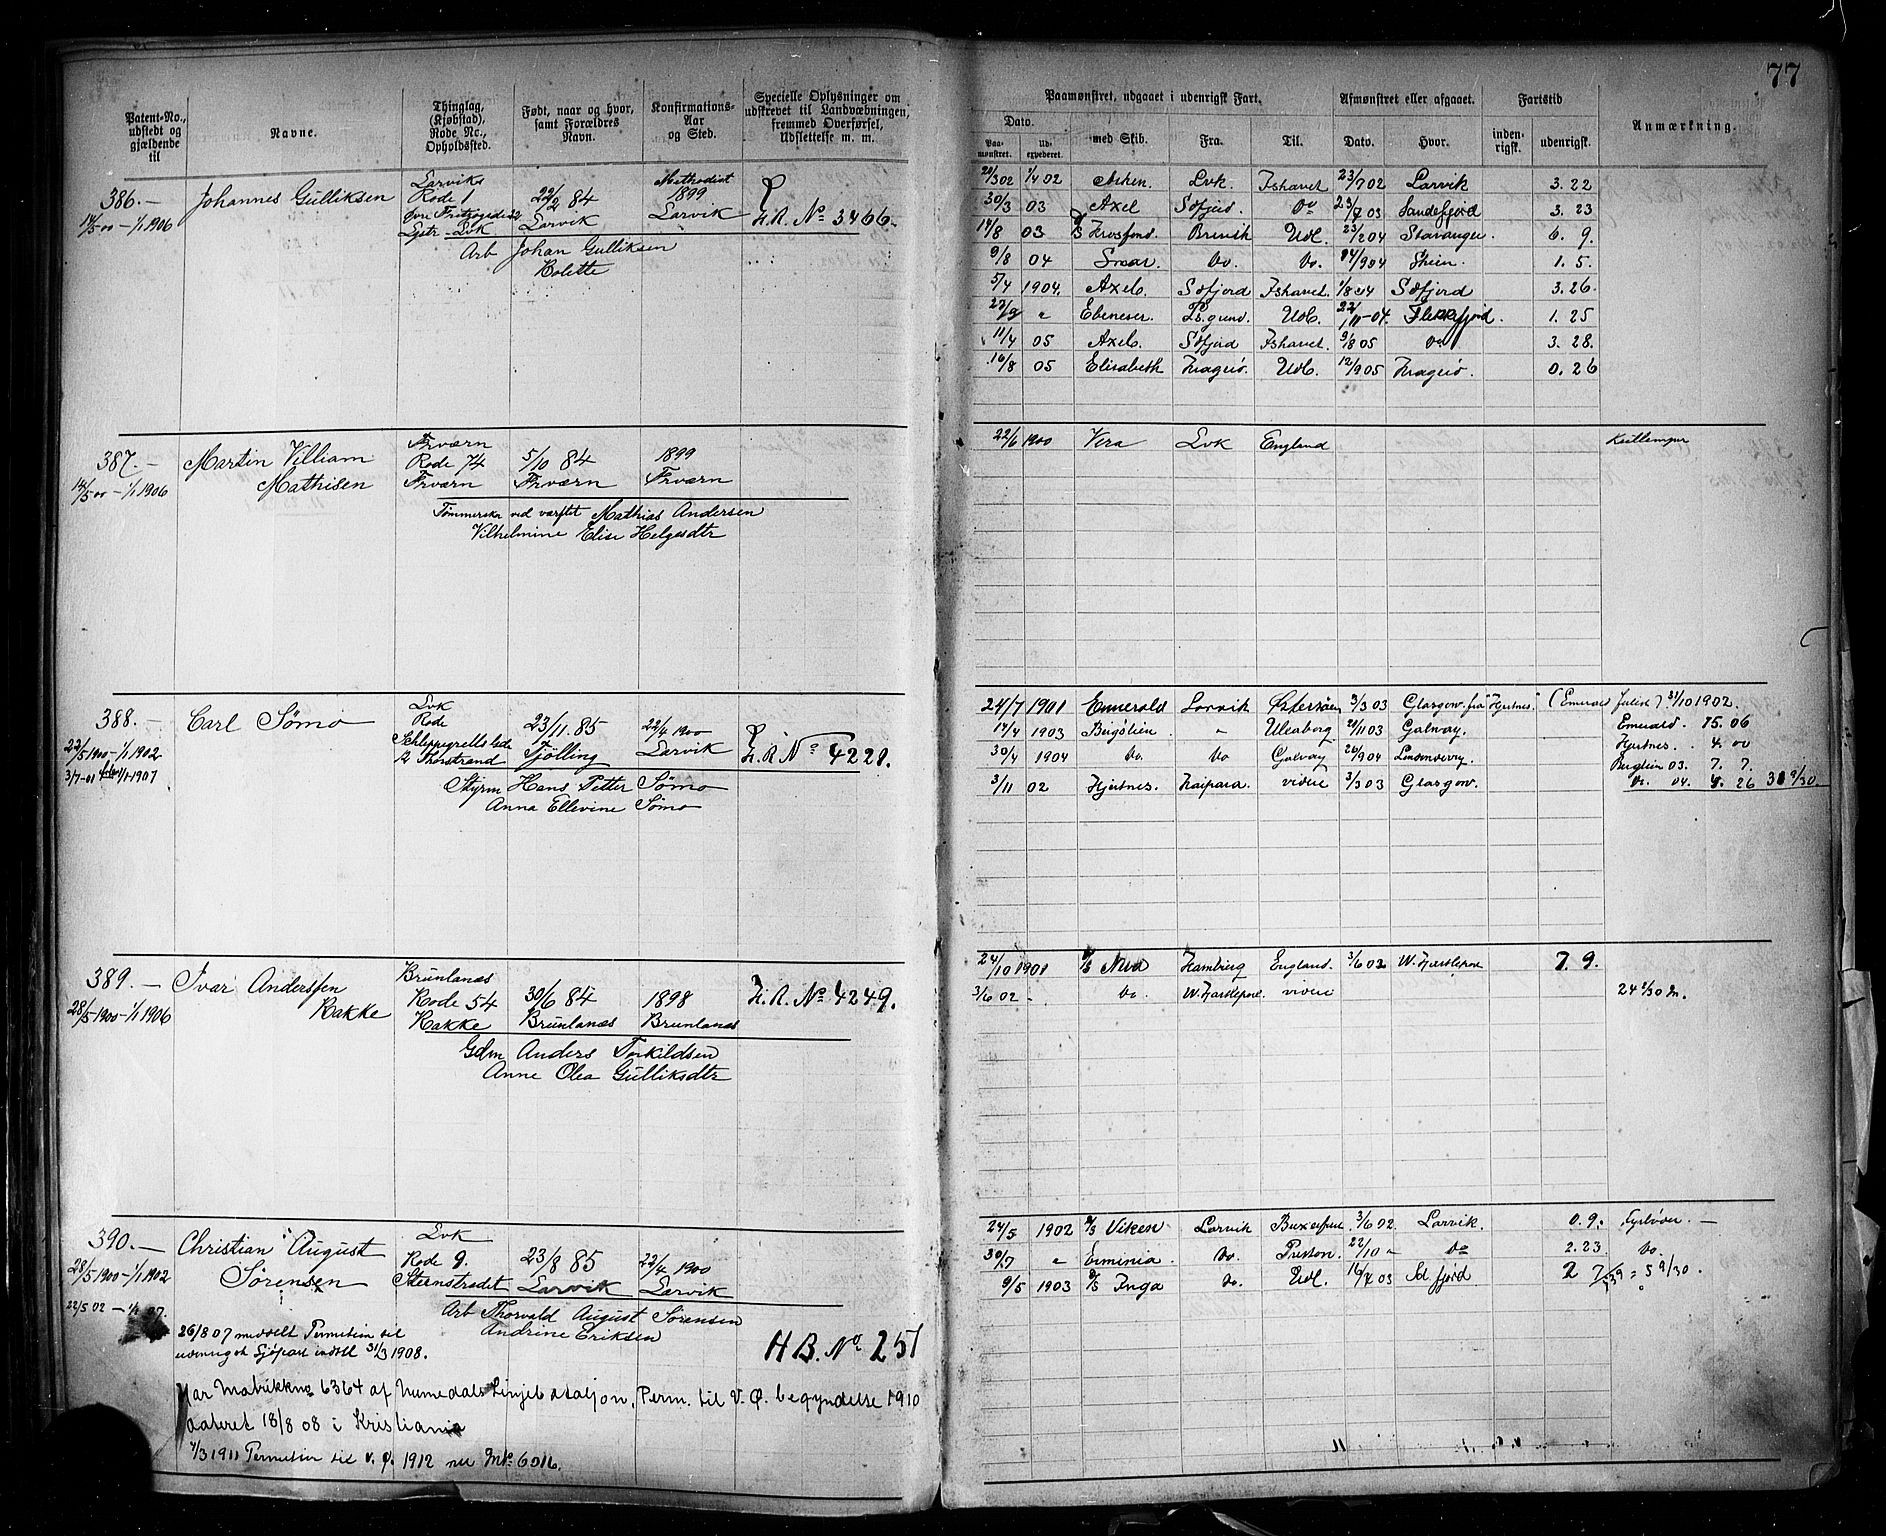 77
Patent-No., udstedt og gjældende til
Navne.
Thinglag, (Kjøbstad), Rode No., Opholdssted.
Født, naar og hvor, samt Forældres Navn.
Konfirmations-Aar og Sted.
Specielle Oplysninger om udskrevet til Landvæbningen, fremmed Overførsel, Udslettelse m. m.
Paamønstret, udgaaet i udenrigsk Fart.
Dato.
Paa-mønstret.
Ud-expederet.
med Skib.
Fra.
Til.
Afmønstret eller afgaaet.
Dato.
Hvor.
Fartstid
inden-rigsk.
udenrigsk.
Anmærkning.
386.-
14/5 00 - 1/1 1906
Johannes Gulliksen
Larviks
Rode 1
Lvk
22/2 84
Larvik
Methodist
1899
Larvik
H.R. No 3466.
Arb Johan Gulliksen
Kolette
3 02 1/4 02 Lvk. Ishavet 23/7 02 Larvik 3. 22
30/3 03 Axel Sdfjord. Do 23/7 03 Sandefjord 3. 23
14/8 03 Brevik Udl. 23/2 04 Stavanger. 6. 9.
9/8 04 Do. Do. Skien. 1. 5.
5/4 1904. Axel. Sdfjord Ishavet. 1/8 04 Sdfjord 3.26.
27/9 " Ebeneser. Udl. 22/11-04. Flekkefjord. 1. 25
11/4 05 Axel. Sdfjord Ishavet. 9/8 05 Do 3. 28.
16/8 05 Elisabeth Kragerö. Udl. 12/9 05 Kragerö. 0. 26
387.-
14/5 00 - 1/1 1906
Martin Villiam
Mathisen
Frværn
Rode 74
Frværn
5/10 84
Frværn
1899
Frværn
ved værftet Mathias Andersen
Vilhelmine Elise Helgesdtr
22/6 1900 Vera Lvk England
388.-
22/5 1900 - 1/1 1902
3/7-01 1/1-1907
Carl Sömo
Lvk
Rode
23/11. 85
Tjölling
22/4 1900
Larvik
H.R No 4228.
Styrm Hans Petter Sömo
Anna Ellevine Sömo
24/7 1901 Emmerald Larvik Östersöen 3/3 03 Glasgow. fra "Hjertnes" (Emerald 31/10 1902.
14/4 1903 Bergslien. " Uleaborg 20/11 03 Galway. Emerald. 15. 06
30/4 1904 Do. Do. Galway 26/9 04 Hjertnes. 4. 00
3/11 02 Hjertnes. videre 3/3 03 Glasgow. 03. 7. 7.
Do. 04. 4. 26
389.-
28/5 1900 - 1/1 1906
Ivar Anderssen
Rakke
Brunlanæs
Rode 54
Rakke
30/6 84
Brunlanæs
1898
Brunlanæs
H.R. No 4249.
Gdm Anders Torkildsen
Anne Olea Gulliksdtr
24/10 1901 Hamburg England. 3/6 02 W. Hartlepool 7. 9.
3/6 02 - Do. W. Hartlepool. videre
390.-
28/5 1900 - 1/1 1902
22/5 02 - 1/1 07.
Christian August
Sörensen
Lvk
Rode 9.
Steenstrædet
23/8 85
Larvik
22/4 1900
Larvik
Arb Thorvald August Sörensen
Andrine Eriksen
H B. No 251
26/8 07 meddelt Permition til
udenrigsk Sjöfart indtil 31/3 1908.
Har Matrikkno 6364 af Numedals Linjebataljon, Perm. til V. Ø. begyndelse 1910
dateret 18/8 08 i Kristiania
1/3 1911 Permition til v. ø. 1912 nu Mtr 6016.
24/5 1902 D/S Viken Larvik 3/6 02. Larvik. 0. 9. Fyrböder. -
30/7 " Erminia. Do. Preston. 22/10 " Do 2. 23. Do.
9/5 1903 D/S Inga Do. Udl. 16/7 03 Sdfjord 2 7